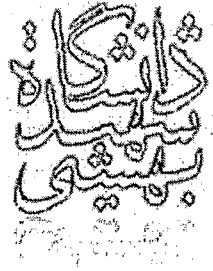 دانشگاه
شهید
بهشتی